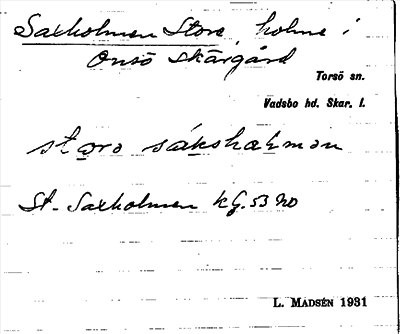 Saxholmen Store, holme i
Onsö skärgård
Torsö sn.
Vadsbo hd. Skar. l.
stora sáksholmon
St. Saxholmen kG. 53 NO
L. MADSÉN 1931